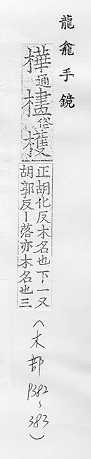 龍龕手鏡
樺通俗檴正胡化反木名也下一又
胡郭反丨落亦木名也三
（木部 P382~383）